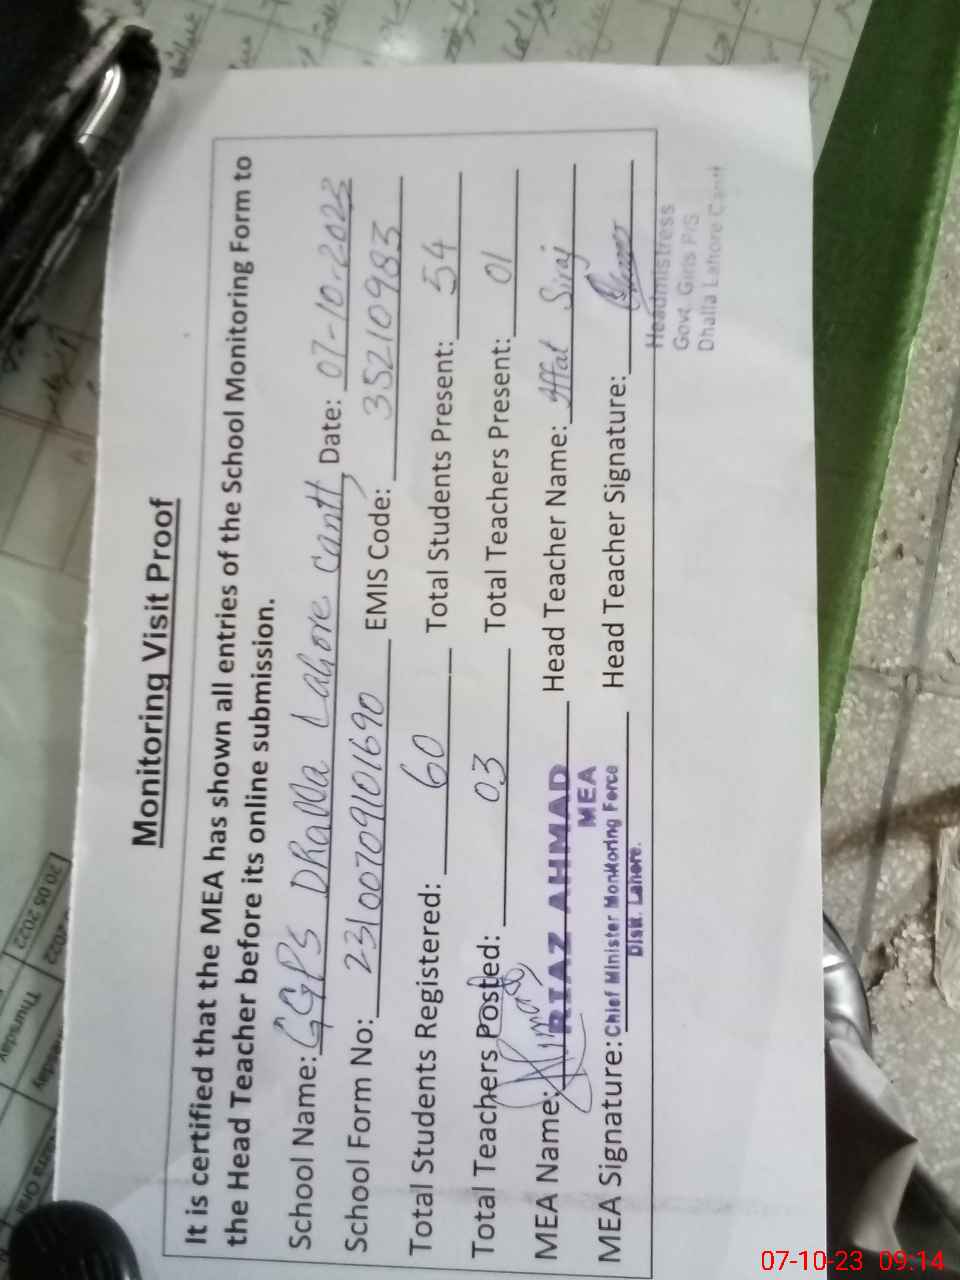 Monitoring Visit Proof
It is certified that the MEA has shown all entries of the School Monitoring Form to
the Head Teacher before its online submission.
School Name: GGPS Dhalla Lahore Cantt, Date: 07-10-2023
School Form No: 23100709101690 EMIS Code: 35210983
Total Students Registered: 60 Total Students Present: 54
Total Teachers Posted: 03 Total Teachers Present: 01
MEA Name: RIAZ AHMAD Head Teacher Name: Iffat Siraj
MEA
MEA Signature: Chief Minister Monitoring Force Head Teacher Signature:
Distt. Lahore.
Headmistress
Govt. Girls P/S
Dhalla Lahore Cantt
20 05 2022
2022
Thursday
07-10-23 09:14